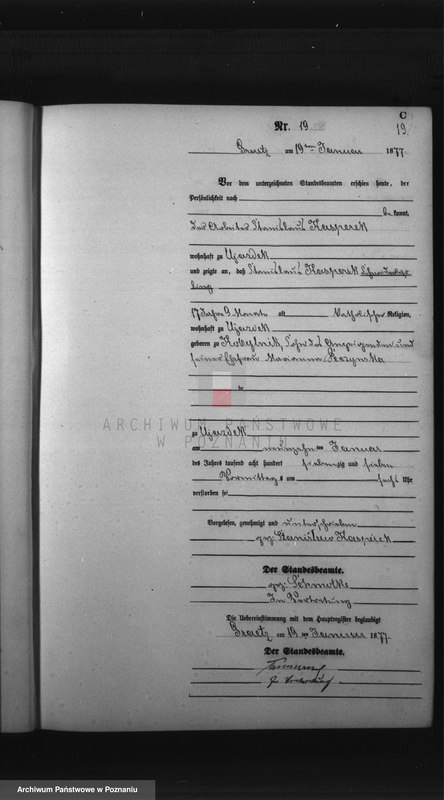 C
Nr. 19
19.
Graetz am 19ten Januar 1877.
Vor dem unterzeichneten Standesbeamten erschien heute, der
Persönlichkeit nach
be kannt,
der Arbeiter Stanislaus Kasperek
wohnhaft zu Ujazdek
und zeigte an, daß Stanislaus Kasperek
17 Jahre 9 Monate alt katholischer Religion,
wohnhaft zu Ujazdek
geboren zu Kobylnik, Sohn des Anzeigenden und
seiner Ehefrau Marianna
de
zu Ujazdek
am neunzehnten Januar
des Jahres tausend acht hundert siebenzig und sieben
Vormittags um Uhr
verstorben sei
Vorgelesen, genehmigt und unterschrieben
gez. Stanislaus Kasperek
Der Standesbeamte.
gez. Schmolke
In Vertretung
Die Uebereinstimmung mit dem Hauptregister beglaubigt
Graetz am 19ten Januar 1877.
Der Standesbeamte.
In Vertretung
ARCHIWUM PAŃSTWOWE
W POZNANIU
Archiwum Państwowe w Poznaniu